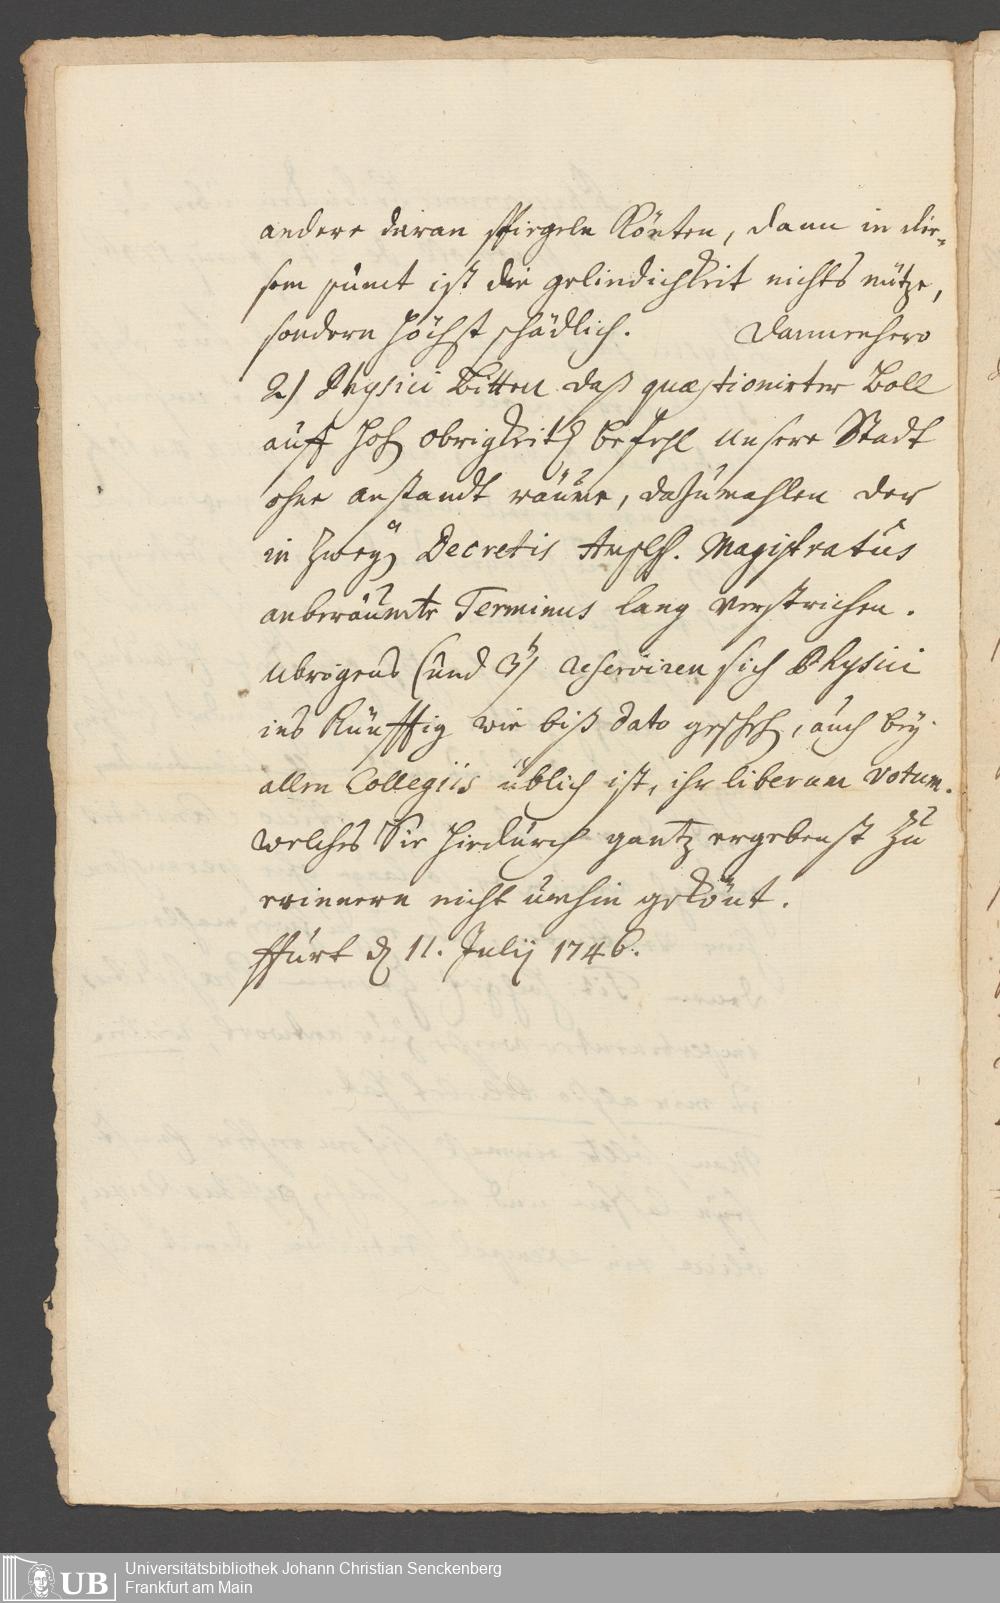 andere daran spiegeln könten, dann in die-
sem punct ist die gelindichkeit nichts nütze,
sondern höchst schädlich. Dannenhero
2.) Physici bitten daß quæstionirter Boll
auff hoh obrigkeitl befehl unsere Stadt
ohne anstandt räume, dazumahlen der
in zwey Decretis Ampliss. Magistratûs
anberaumte Terminus lang verstrichen.
Ubrigens (und 3) reserviren sich Physici
ins künfftig wie biß dato gescheh, auch bey
allen Collegiis üblich ist, ihr liberum votum.
welches Sie hiedurch gantz ergebenst zu
erinnern nicht umhin gekönt.
ffurt d 11. Julij 1746.
UB
Universitätsbibliothek Johann Christian Senckenberg
Frankfurt am Main